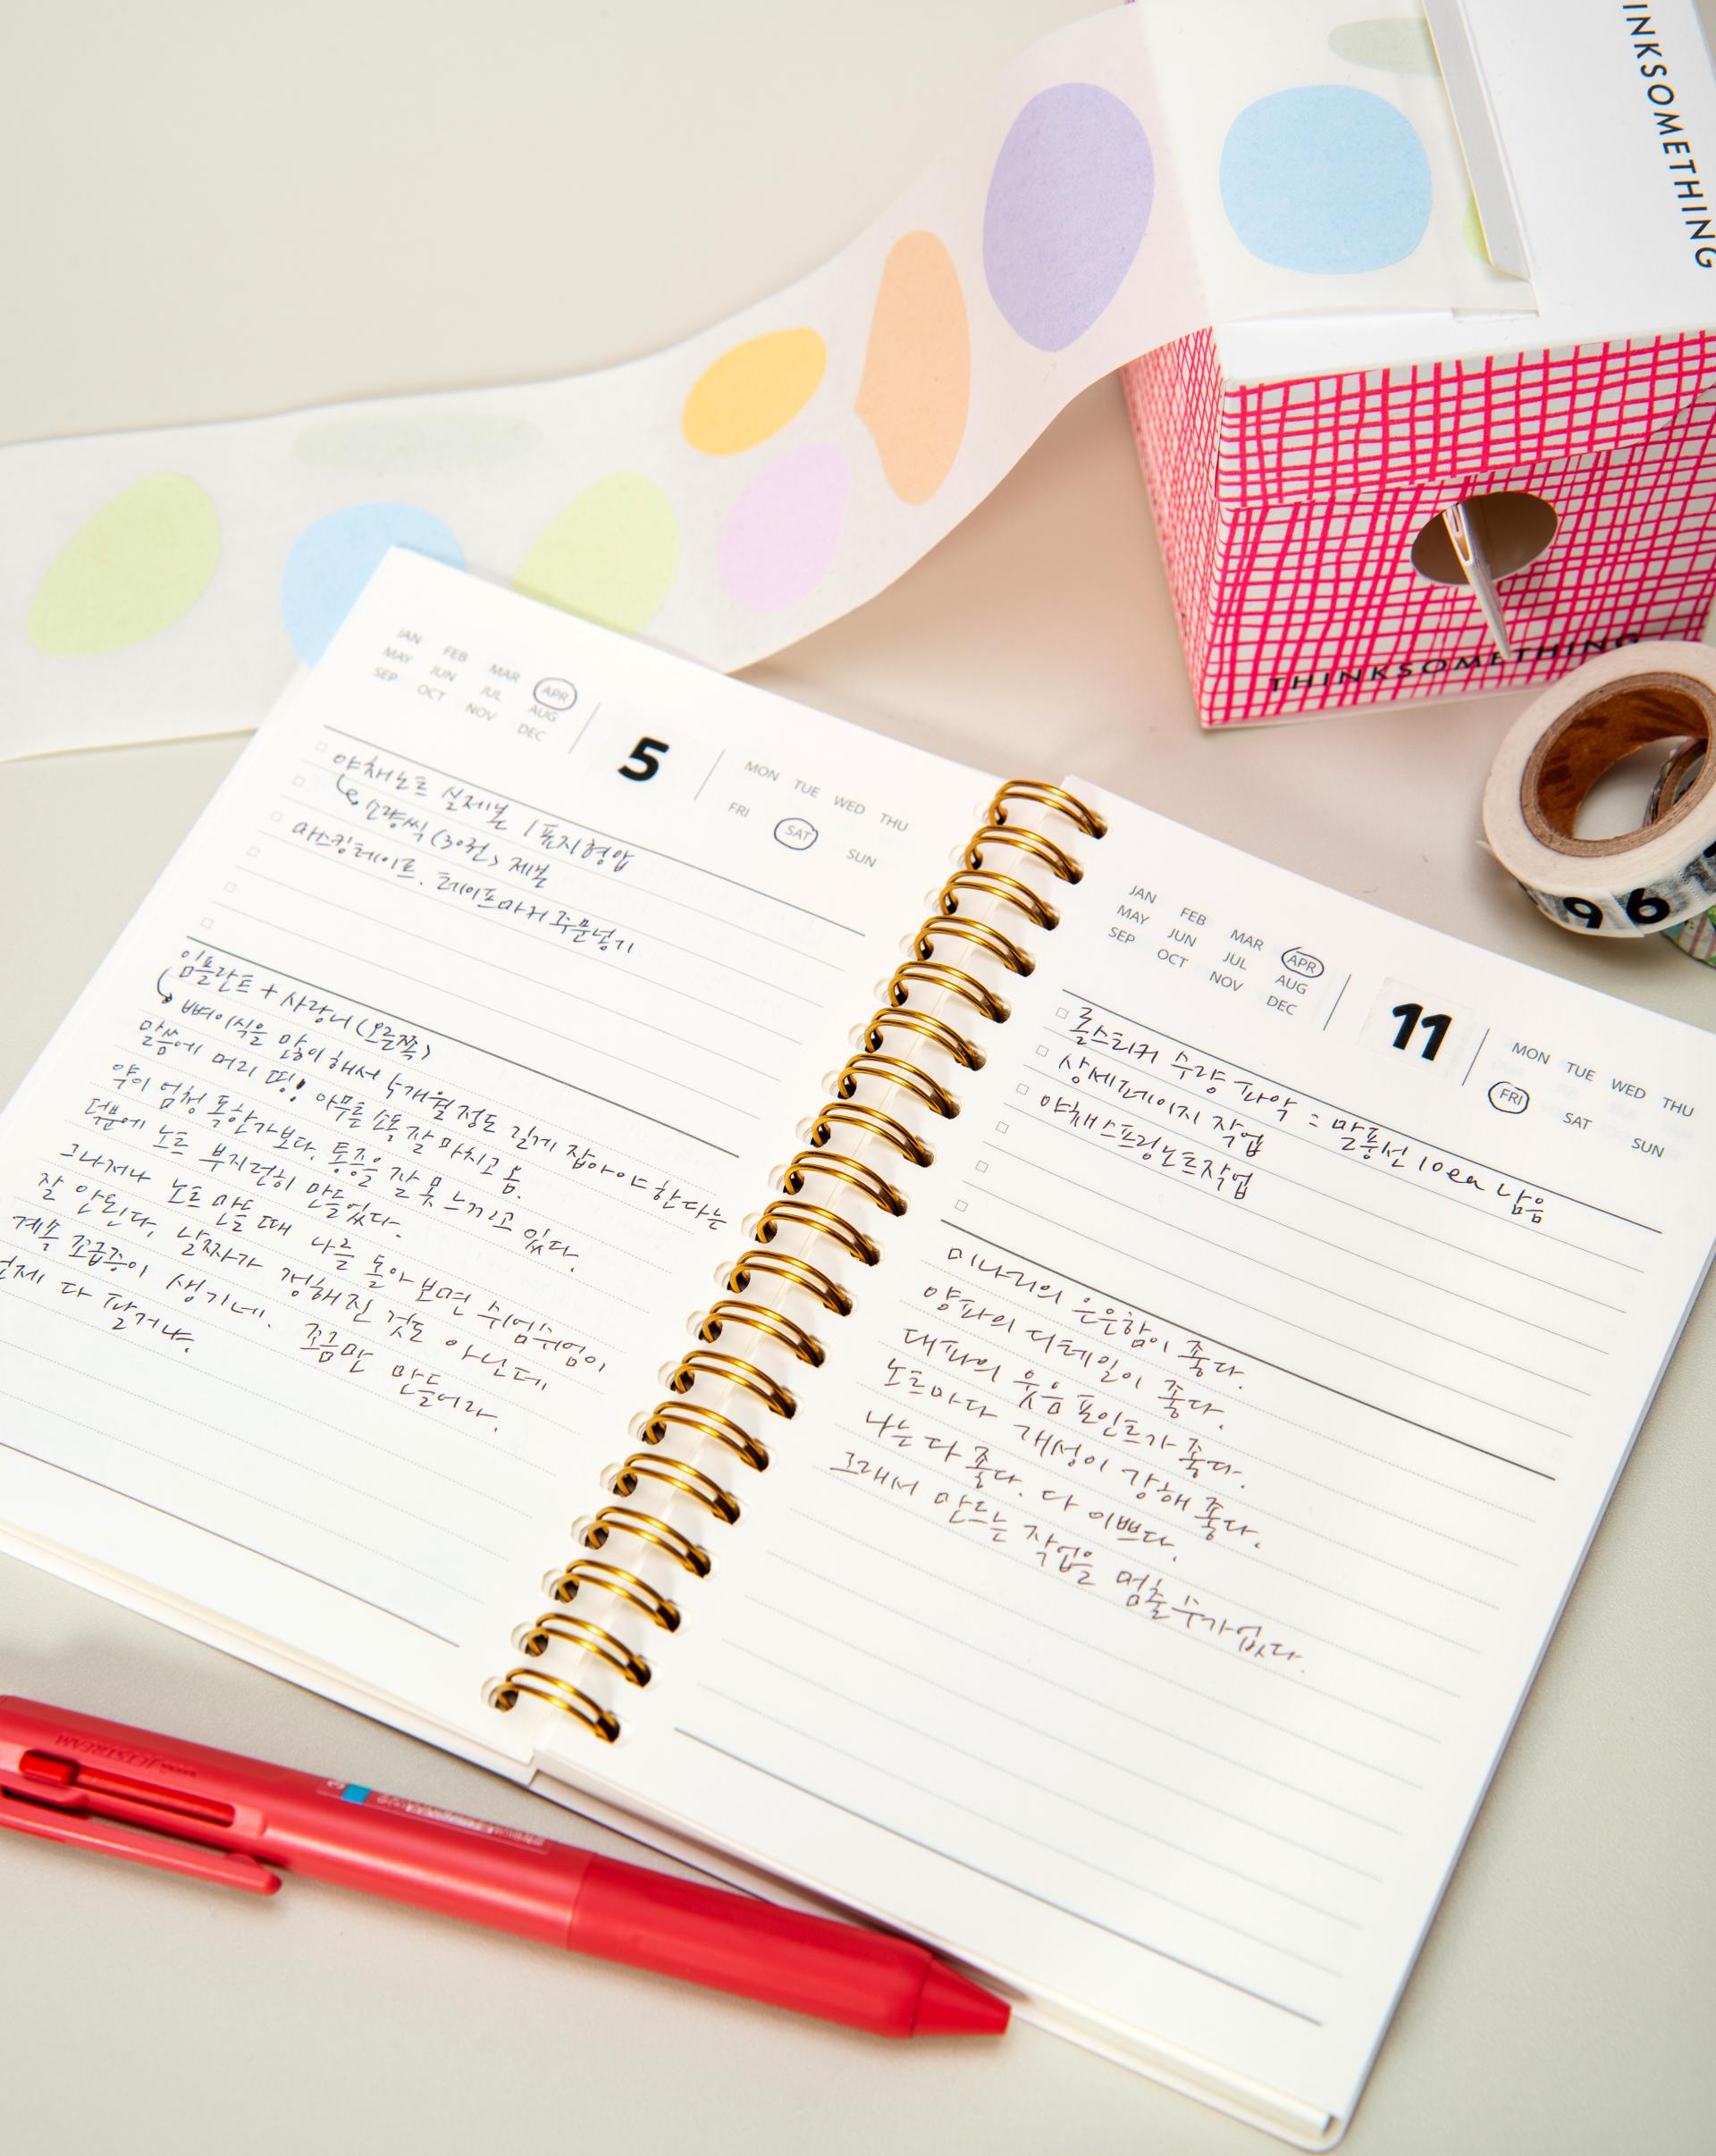 INKSOMETHING
THINKSOMETHING
9 6
JAN FEB MAR APR
MAY JUN JUL AUG
SEP OCT NOV DEC
5
MON TUE WED THU
FRI SAT SUN
야채노트 실제본 / 표지형압
소량씩 (30권) 제본
마스킹테이프. 테이프마커 주문넣기
임플란트 + 사랑니 (오른쪽)
뼈이식을 많이해서 5개월정도 길게 잡아야한다는
말씀에 머리 띵! 아무튼 수술 잘 마치고 옴.
약이 엄청 독한가보다. 통증을 잘 못 느끼고 있다.
덕분에 노트 부지런히 만들었다.
그나저나 노트 만들때 나를 돌아보면 쉬엄쉬엄이
잘 안된다. 날짜가 정해진 것도 아닌데
계속 조급증이 생기네. 조금만 만들어라.
언제 다 팔거냐.
JAN FEB MAR APR
MAY JUN JUL AUG
SEP OCT NOV DEC
11
MON TUE WED THU
FRI SAT SUN
롤스티커 수량 파악 = 말풍선 10ea 남음
상세페이지 작업
야채스프링노트작업
미나리의 은은함이 좋다.
양파의 디테일이 좋다.
대파의 웃음 포인트가 좋다.
노트마다 개성이 강해 좋다.
나는 다 좋다. 다 이쁘다.
그래서 만드는 작업을 멈출수가없다.
JETSTREAM